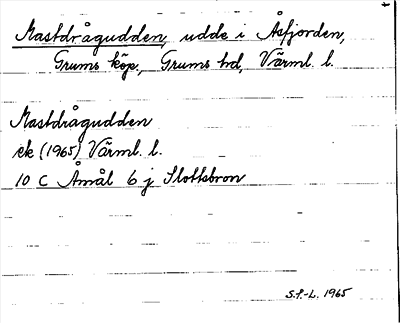 Mastdrågudden, udde i Åsfjorden,
Grums köp., Grums hd, Värml. l.
Mastdrågudden
ek (1965) Värml. l.
10 C Åmål 6 j Slottsbron
S.f.-L. 1965